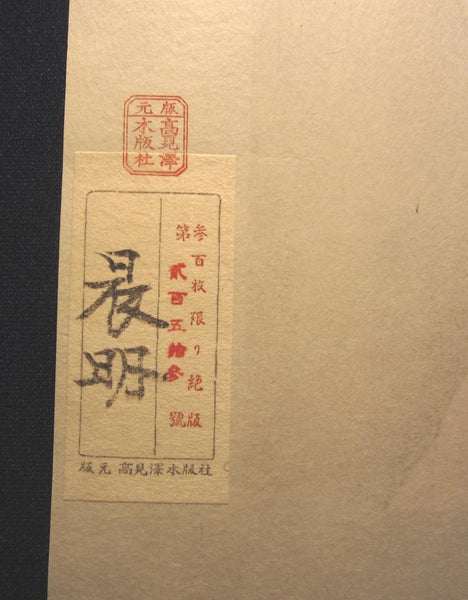 版元
高見澤
木版社
参百枚限り絶版
第貳百五拾参號
晨明
版元 高見澤木版社